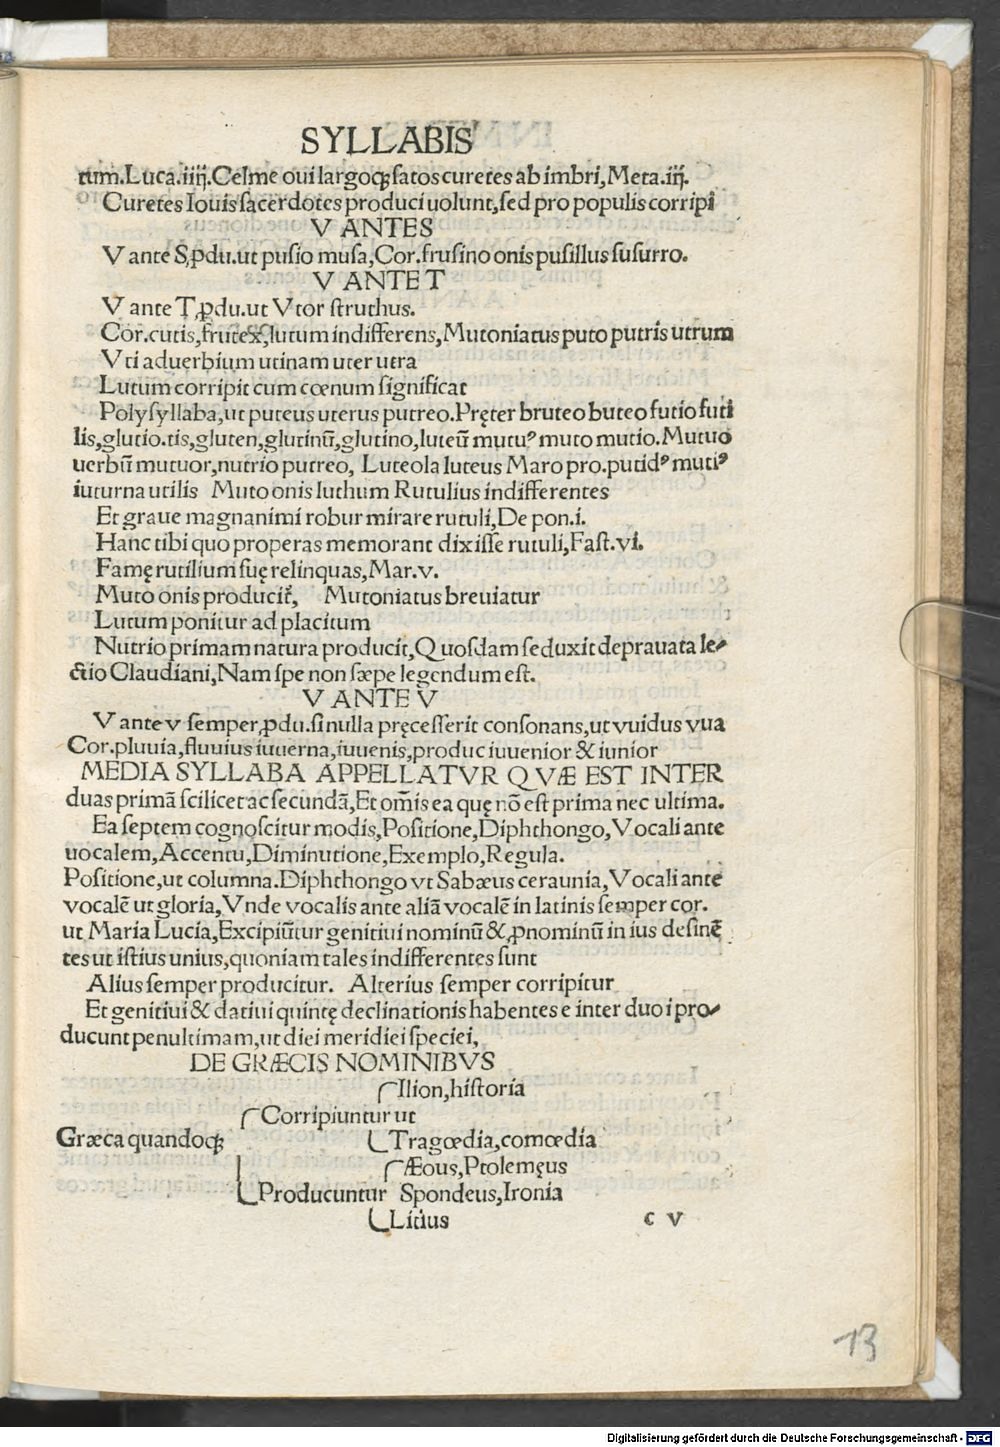 SYLLABIS
tum̃.Luca.iiij.Celme oui largoqꝫ satos curetes ab imbri,Meta.iiij.
Curetes Iouis sacerdotes produci uolunt,sed pro populis corripi
V ANTE S
V ante S,ꝓdu.ut pusio musa,Cor.frusino onis pusillus susurro.
V ANTE T
V ante T,ꝓdu.ut Vtor struthus.
Cor.cutis,frutex,lutum indifferens,Mutoniatus puto putris utrum
Vti aduerbium utinam uter utra
Lutum corripit cum cœnum significat
Polysyllaba,ut puteus uterus putreo.Pręter bruteo buteo futio futi
lis,glutio.tis,gluten,glutinū,glutino,luteū mutuꝰ muto mutio.Mutuo
uerbū mutuor,nutrio putreo, Luteola luteus Maro pro.putidꝰ mutiꝰ
iuturna utilis Muto onis luthum Rutulius indifferentes
Et graue magnanimi robur mirare rutuli,De pon.i.
Hanc tibi quo properas memorant dixisse rutuli,Fast.vi.
Famę rutilium suę relinquas,Mar.v.
Muto onis producit̃, Mutoniatus breuiatur
Lutum ponitur ad placitum
Nutrio primam natura producit,Quosdam seduxit deprauata le⸗
ctio Claudiani,Nam spe non sæpe legendum est.
V ANTE V
V ante v semper,ꝓdu.si nulla pręcesserit consonans,ut vuidus vua
Cor.pluuia,fluuius iuuerna,iuuenis,produc iuuenior & iunior
MEDIA SYLLABA APPELLATVR QVÆ EST INTER
duas primā scilicet ac secundā,Et om̃is ea quę nō est prima nec ultima.
Ea septem cognoscitur modis,Positione,Diphthongo,Vocali ante
uocalem,Accentu,Diminutione,Exemplo,Regula.
Positione,ut columna.Diphthongo vt Sabæus ceraunia,Vocali ante
vocalē ut gloria,Vnde vocalis ante aliā vocalē in latinis semper cor.
ut Maria Lucia,Excipiūtur genitiui nominū &,ꝓnominū in ius desinē
tes ut istius unius,quoniam tales indifferentes sunt
Alius semper producitur. Alterius semper corripitur
Et genitiui & datiui quintę declinationis habentes e inter duo i pro⸗
ducunt penultimam,ut diei meridiei speciei,
DE GRÆCIS NOMINIBVS
Ilion,historia
Corripiuntur ut
Græca quandoqꝫ Tragœdia,comœdia
Æous,Ptolemęus
Producuntur Spondeus,Ironia
Litius c v
13
Digitalisierung gefördert durch die Deutsche Forschungsgemeinschaft - DFG